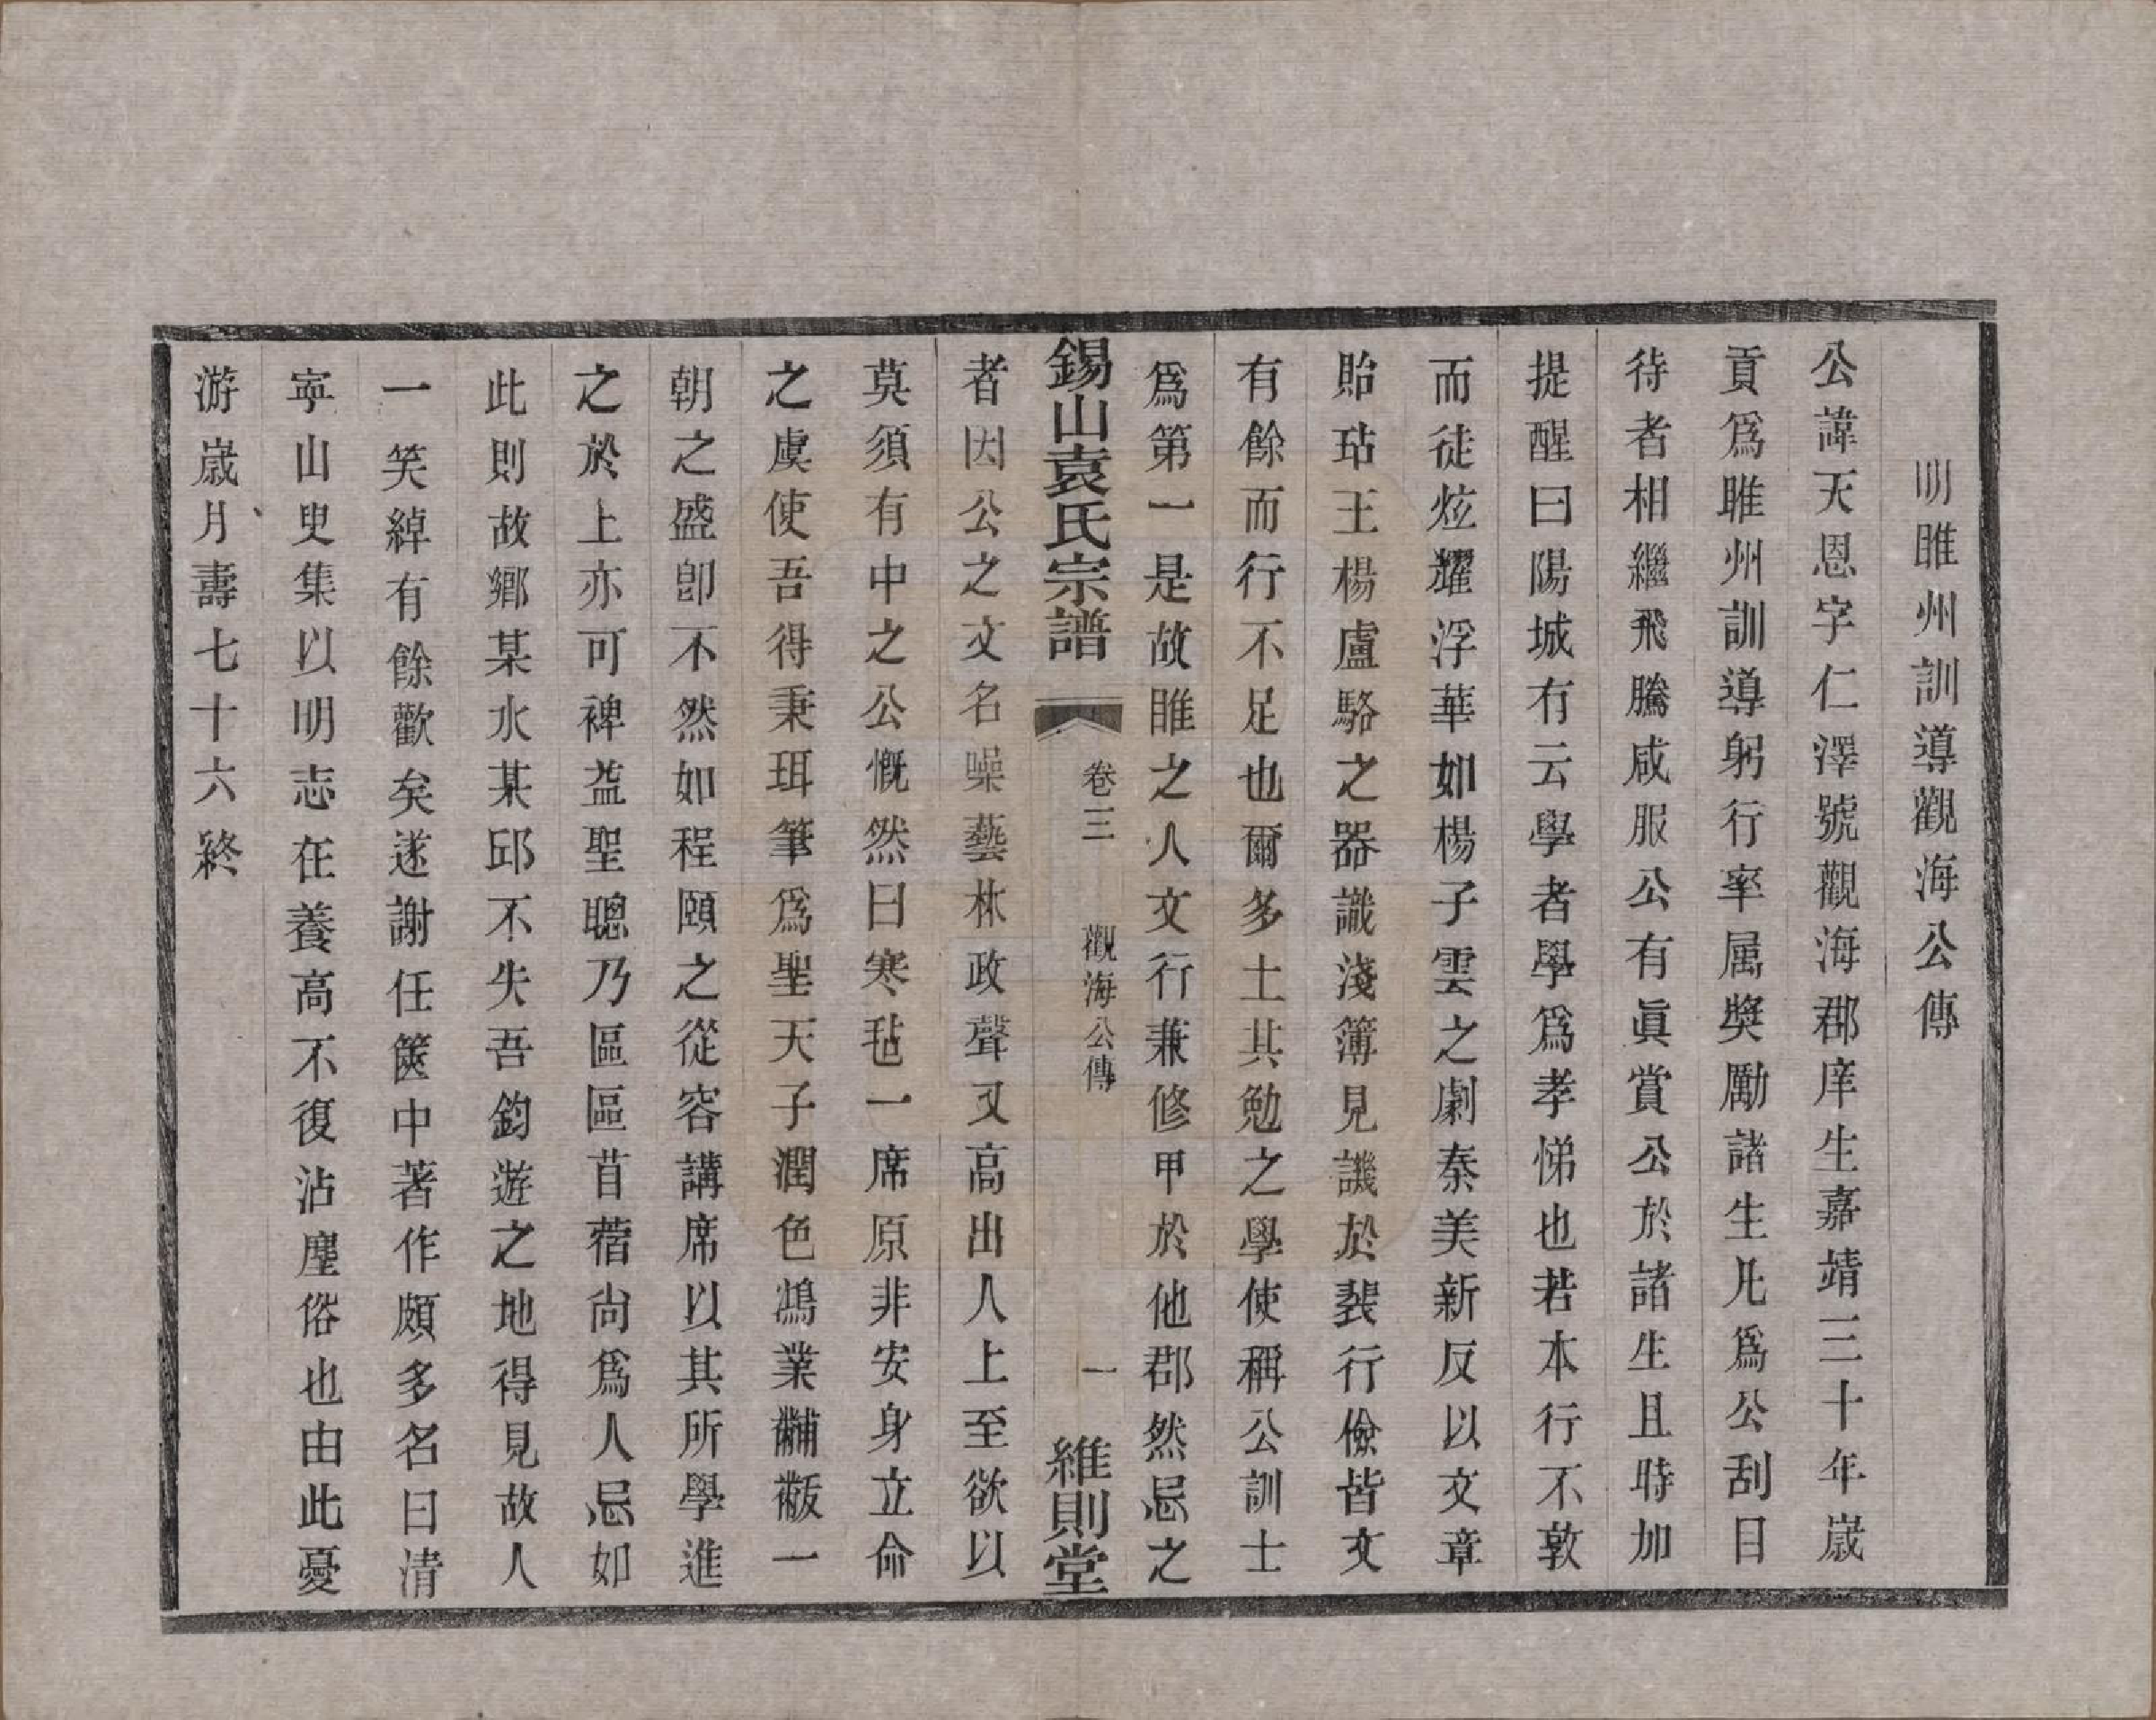 明睢州訓導觀海公傳
公諱天恩字仁澤號觀海郡庠生嘉靖三十年歲
貢爲睢州訓導躬行率属獎勵諸生凡爲公刮目
待者相繼飛騰咸服公有眞賞公於諸生且時加
提醒曰陽城有云學者學爲孝悌也若本行不敦
而徒炫耀浮華如楊子雲之劇秦美新反以文章
貽玷王楊盧駱之器識淺簿見譏於裴行儉皆文
有餘而行不足也爾多士其勉之學使稱公訓士
爲第一是故睢之人文行兼修甲於他郡然忌之
錫山袁氏宗譜 卷三 觀海公傳 一 維則堂
者因公之文名噪藝林政聲又高出人上至欲以
莫須有中之公慨然曰寒毡一席原非安身立命
之虞使吾得秉珥筆爲聖天子潤色鴻業黼黻一
朝之盛卽不然如程頤之從容講席以其所學進
之於上亦可裨益聖聰乃區區苜蓿尙爲人忌如
此則故鄉某水某邱不失吾釣遊之地得見故人
一笑綽有餘歡矣遂謝任篋中著作頗多名曰清
寧山叟集以明志在養高不復沾塵俗也由此憂
游歲月壽七十六終